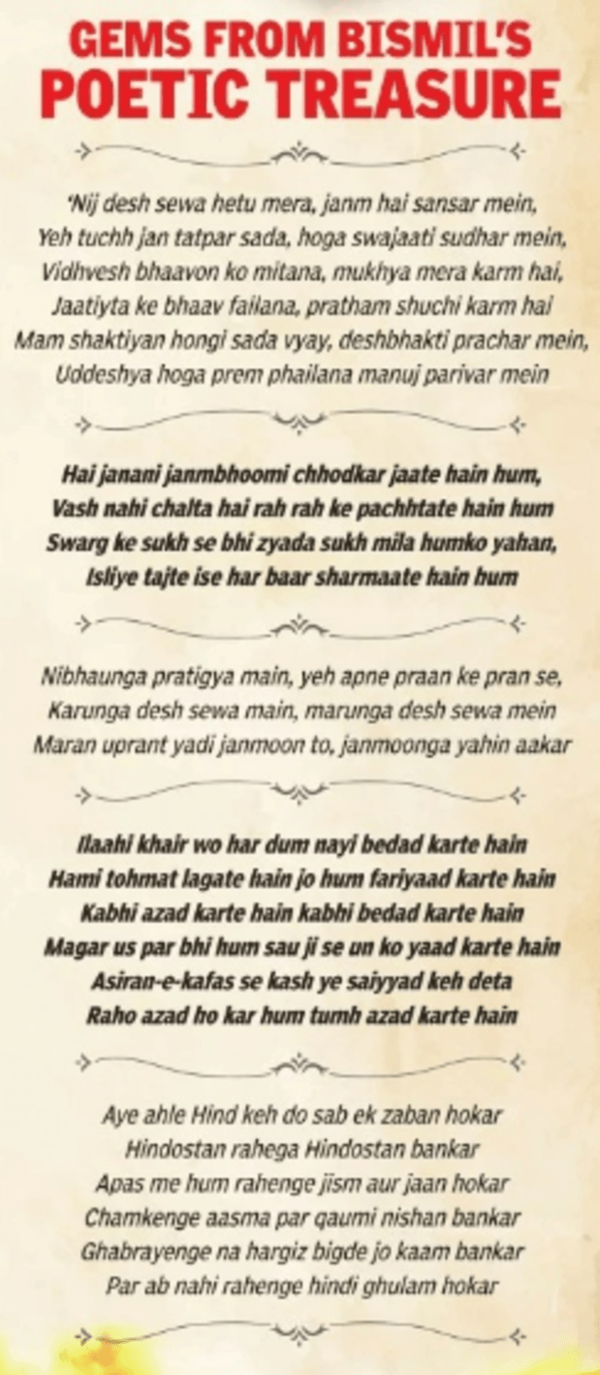 GEMS FROM BISMIL'S
POETIC TREASURE
'Nij desh sewa hetu mera, janm hai sansar mein,
Yeh tuchh jan tatpar sada, hoga swajaati sudhar mein,
Vidhvesh bhaavon ko mitana, mukhya mera karm hai,
Jaatiyta ke bhaav failana, pratham shuchi karm hai
Mam shaktiyan hongi sada vyay, deshbhakti prachar mein,
Uddeshya hoga prem phailana manuj parivar mein
Hai janani janmbhoomi chhodkar jaate hain hum,
Vash nahi chalta hai rah rah ke pachhtate hain hum
Swarg ke sukh se bhi zyada sukh mila humko yahan,
Isliye tajte ise har baar sharmaate hain hum
Nibhaunga pratigya main, yeh apne praan ke pran se,
Karunga desh sewa main, marunga desh sewa mein
Maran uprant yadi janmoon to, janmoonga yahin aakar
Ilaahi khair wo har dum nayi bedad karte hain
Hami tohmat lagate hain jo hum fariyaad karte hain
Kabhi azad karte hain kabhi bedad karte hain
Magar us par bhi hum sau ji se un ko yaad karte hain
Asiran-e-kafas se kash ye saiyyad keh deta
Raho azad ho kar hum tumh azad karte hain
Aye ahle Hind keh do sab ek zaban hokar
Hindostan rahega Hindostan bankar
Apas me hum rahenge jism aur jaan hokar
Chamkenge aasma par qaumi nishan bankar
Ghabrayenge na hargiz bigde jo kaam bankar
Par ab nahi rahenge hindi ghulam hokar